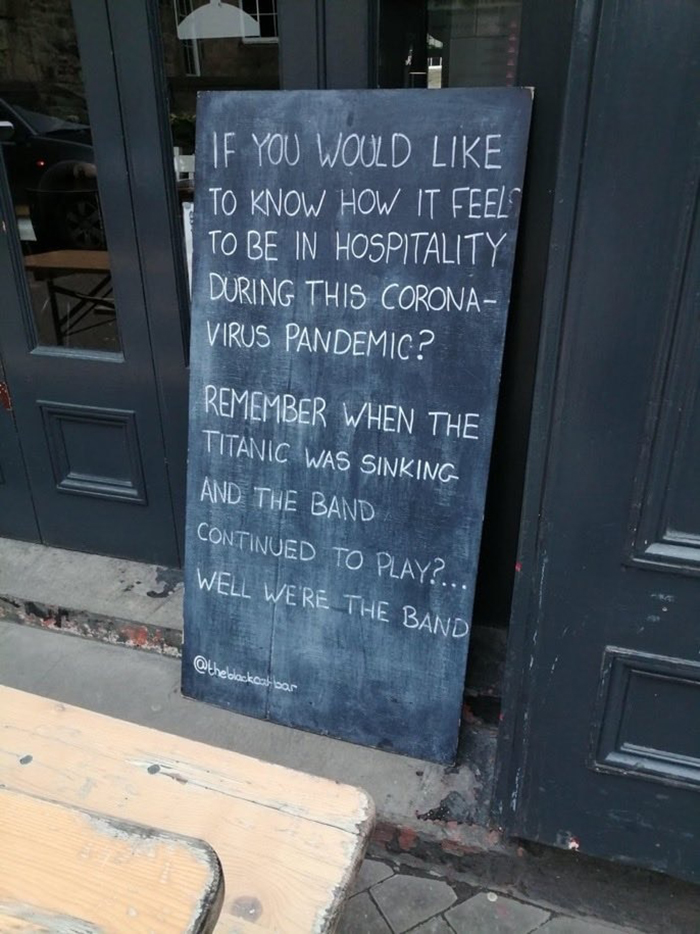 IF YOU WOULD LIKE
TO KNOW HOW IT FEELS
TO BE IN HOSPITALITY
DURING THIS CORONA-
VIRUS PANDEMIC?
REMEMBER WHEN THE
TITANIC WAS SINKING
AND THE BAND
CONTINUED TO PLAY?...
WELL WERE THE BAND
@theblackcatbar